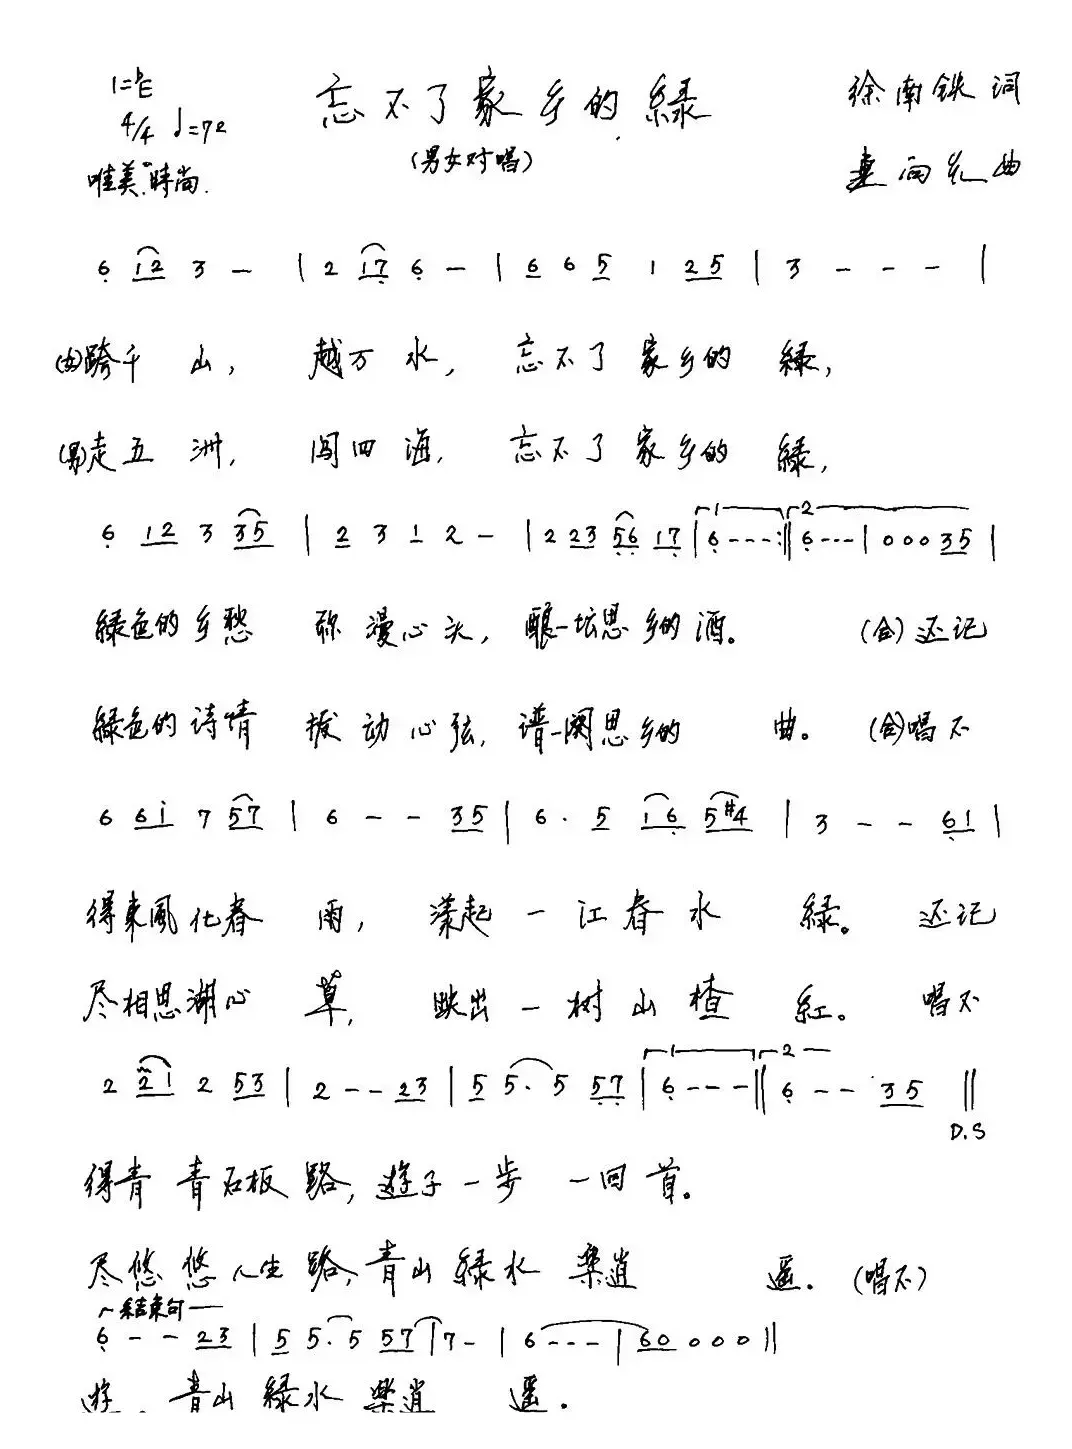 1=♭E
忘不了家乡的緑
徐南铁 词
4/4 ♩=72
(男女对唱)
唯美.時尚.
向红曲
6̣ 1 2 3 - | 2 1 7̣ 6̣ - | 6 6 5 1 2 5 | 3 - - - |
(女)跨千 山, 越万 水, 忘不了 家乡的 緑,
(男)走五 洲, 闯四 海, 忘不了 家乡的 緑,
6̣ 1 2 3 3 5 | 2 3 1 2 - | 2 2 3 5̣ 6̣ 1 7̣ | 1 6̣ - - - :‖ 2 6̣ - - - | 0 0 0 3 5 |
緑色的乡愁 弥漫心头, 酿一坛思乡的酒。 (合)还记
緑色的诗情 拨动心弦, 谱一阕思乡的 曲。 (合)唱不
6 6 1̇ 7 5 7 | 6 - - 3 5 | 6 . 5 1 6̣ 5 #4 | 3 - - 6̣ 1 |
得東風化春 雨, 漾起一江春水 緑。 还记
尽相思湖心 草, 映出一树山楂 紅。 唱不
2 2 1 2 5 3 | 2 - - 2 3 | 5 5 . 5 5̣ 7̣ | 1 6̣ - - - ‖ 2 6̣ - - 3 5 ‖
D.S
得青 青石板 路, 遊子一步 一回首。
尽悠 悠人生 路, 青山緑水 樂逍 遥。(唱不)
~结束句—
6̣ - - 2 3 | 5 5 . 5 5 7 | 7 - | 6 - - - | 6 0 0 0 0 ‖
青山 緑水 樂逍 遥.